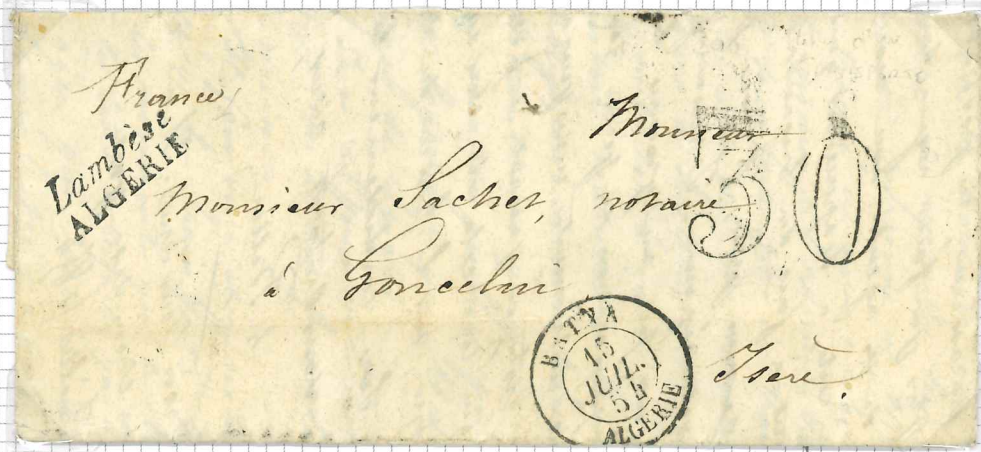 France,
Lambèse
ALGERIE
Monsieur
30
Monsieur Sachet, notaire
à Goncelin
Isère.
BATNA
15
JUIL.
54
ALGERIE